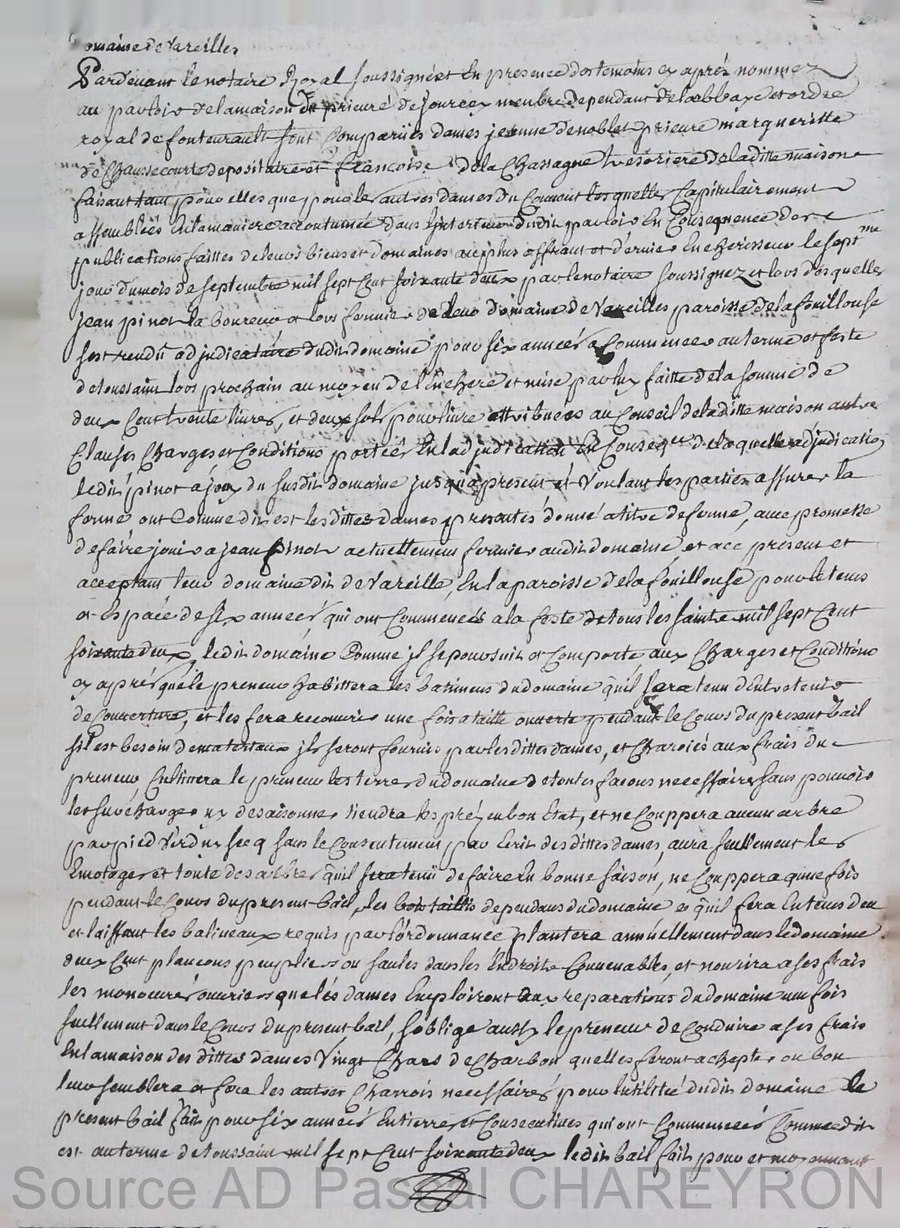 omaine de Vareilles
Pardevant le notaire Royal soussigné et En presence des temoins cy après nommez
au parloir de la maison du prieuré de Jourcey menbre dependant de labbaye et ordre
royal de fonteurault font Compariies dames jeanne denoblet prieure margueritte
de Chaussecourte depositaire et francoise de la Chassagne tresoriere de la ditte maison
faisant tant pour elles que pour les autres dames du Couvent lesquelles Capitulairement
assemblées En la maniere acoutumée dans linterieur dudit parloir En Consequence des
publications faittes de leurs biens et domaines au plus offrant et dernier Encherisseur le sept me
jour du mois de septembre mil sept Cent soixante deux par le notaire soussignez et lors desquelles
jean pinot laboureur et lors fermier de leur domaine de Vareilles paroisse de la fouillouse
sest rendu adjudicataire dudit domaine pour six années a Commencer au terme et feste
de toussaint lors prochain au moyen de lenchere et mise par luy faitte de la somme de
deux Cent trente livres, et deux sols pour livre attribuées au Conseil de la ditte maison autre
Clauses Charges et Conditions portées En ladjudication En Conseq ce de la quelle adjudication
ledit pinot a jouy du susdit domaine jusqua present et Voulant les parties assurer la
ferme ont Comme dit est les dittes dames presentes donné a titre de ferme, avec promesse
de faire jouir a jean pinot actuellement fermier audit domaine et ace present et
acceptant leur domaine dit de Vareille, En la paroisse de la fouillouse pour le tems
et Espace de six années qui ont Commencés a la feste de tous les saints mil sept Cent
soixante deux, ledit domaine Comme jl se poursuit et Comporte aux Charges et Conditions
cy après que le preneur habittera les batimens du domaine quil sera tenu dEntretenir
de Couverture, et les fera recouvrir une fois a taille ouverte pendant le Cours du present bail
sil est besoin de materiaux jls seront fournies par les dittes dames, et Charoiés aux frais du
preneur Cultivera le preneur les terres du domaine de toutes facons necessaires sans pouvoir
les surcharger ny desaisonner tiendra les préz En bon Etat, et ne Couppera aucun arbre
par pied Verd ny secq sans le Consentement par Ecrit des dittes dames, aura seullement les
Emotages et tonte des arbres quil sera tenu de faire En bonne saison, ne Couppera quune fois
pendant le Cours du present bail, les bois taillis dependans du domaine et quil fera En tems deu
et laissant les balineaux requis par lordonnance plantera annuellement dans le domaine
deux Cent plancons peupliers ou saules dans les Endroits Convenables, et nourira a ses frais
les manoeuvres ouvriers que les dames Emploiront aux reparations du domaine une fois
seullement dans le Cours du present bail, soblige aussy le preneur de Conduire a ses frais
En la maison des dittes dames Vingt Chars de Charbon quelles feront achepter ou bon
leur semblera et fera les autres Charrois necessaires pour lutilité dudit domaine le
present bail fait pour six années Entierres et Consecutives qui ont Commencés Comme dit
est au terme de toussaint mil sept Cent soixante deux ledit bail fait pour et moyennant
Source AD Pascal CHAREYRON